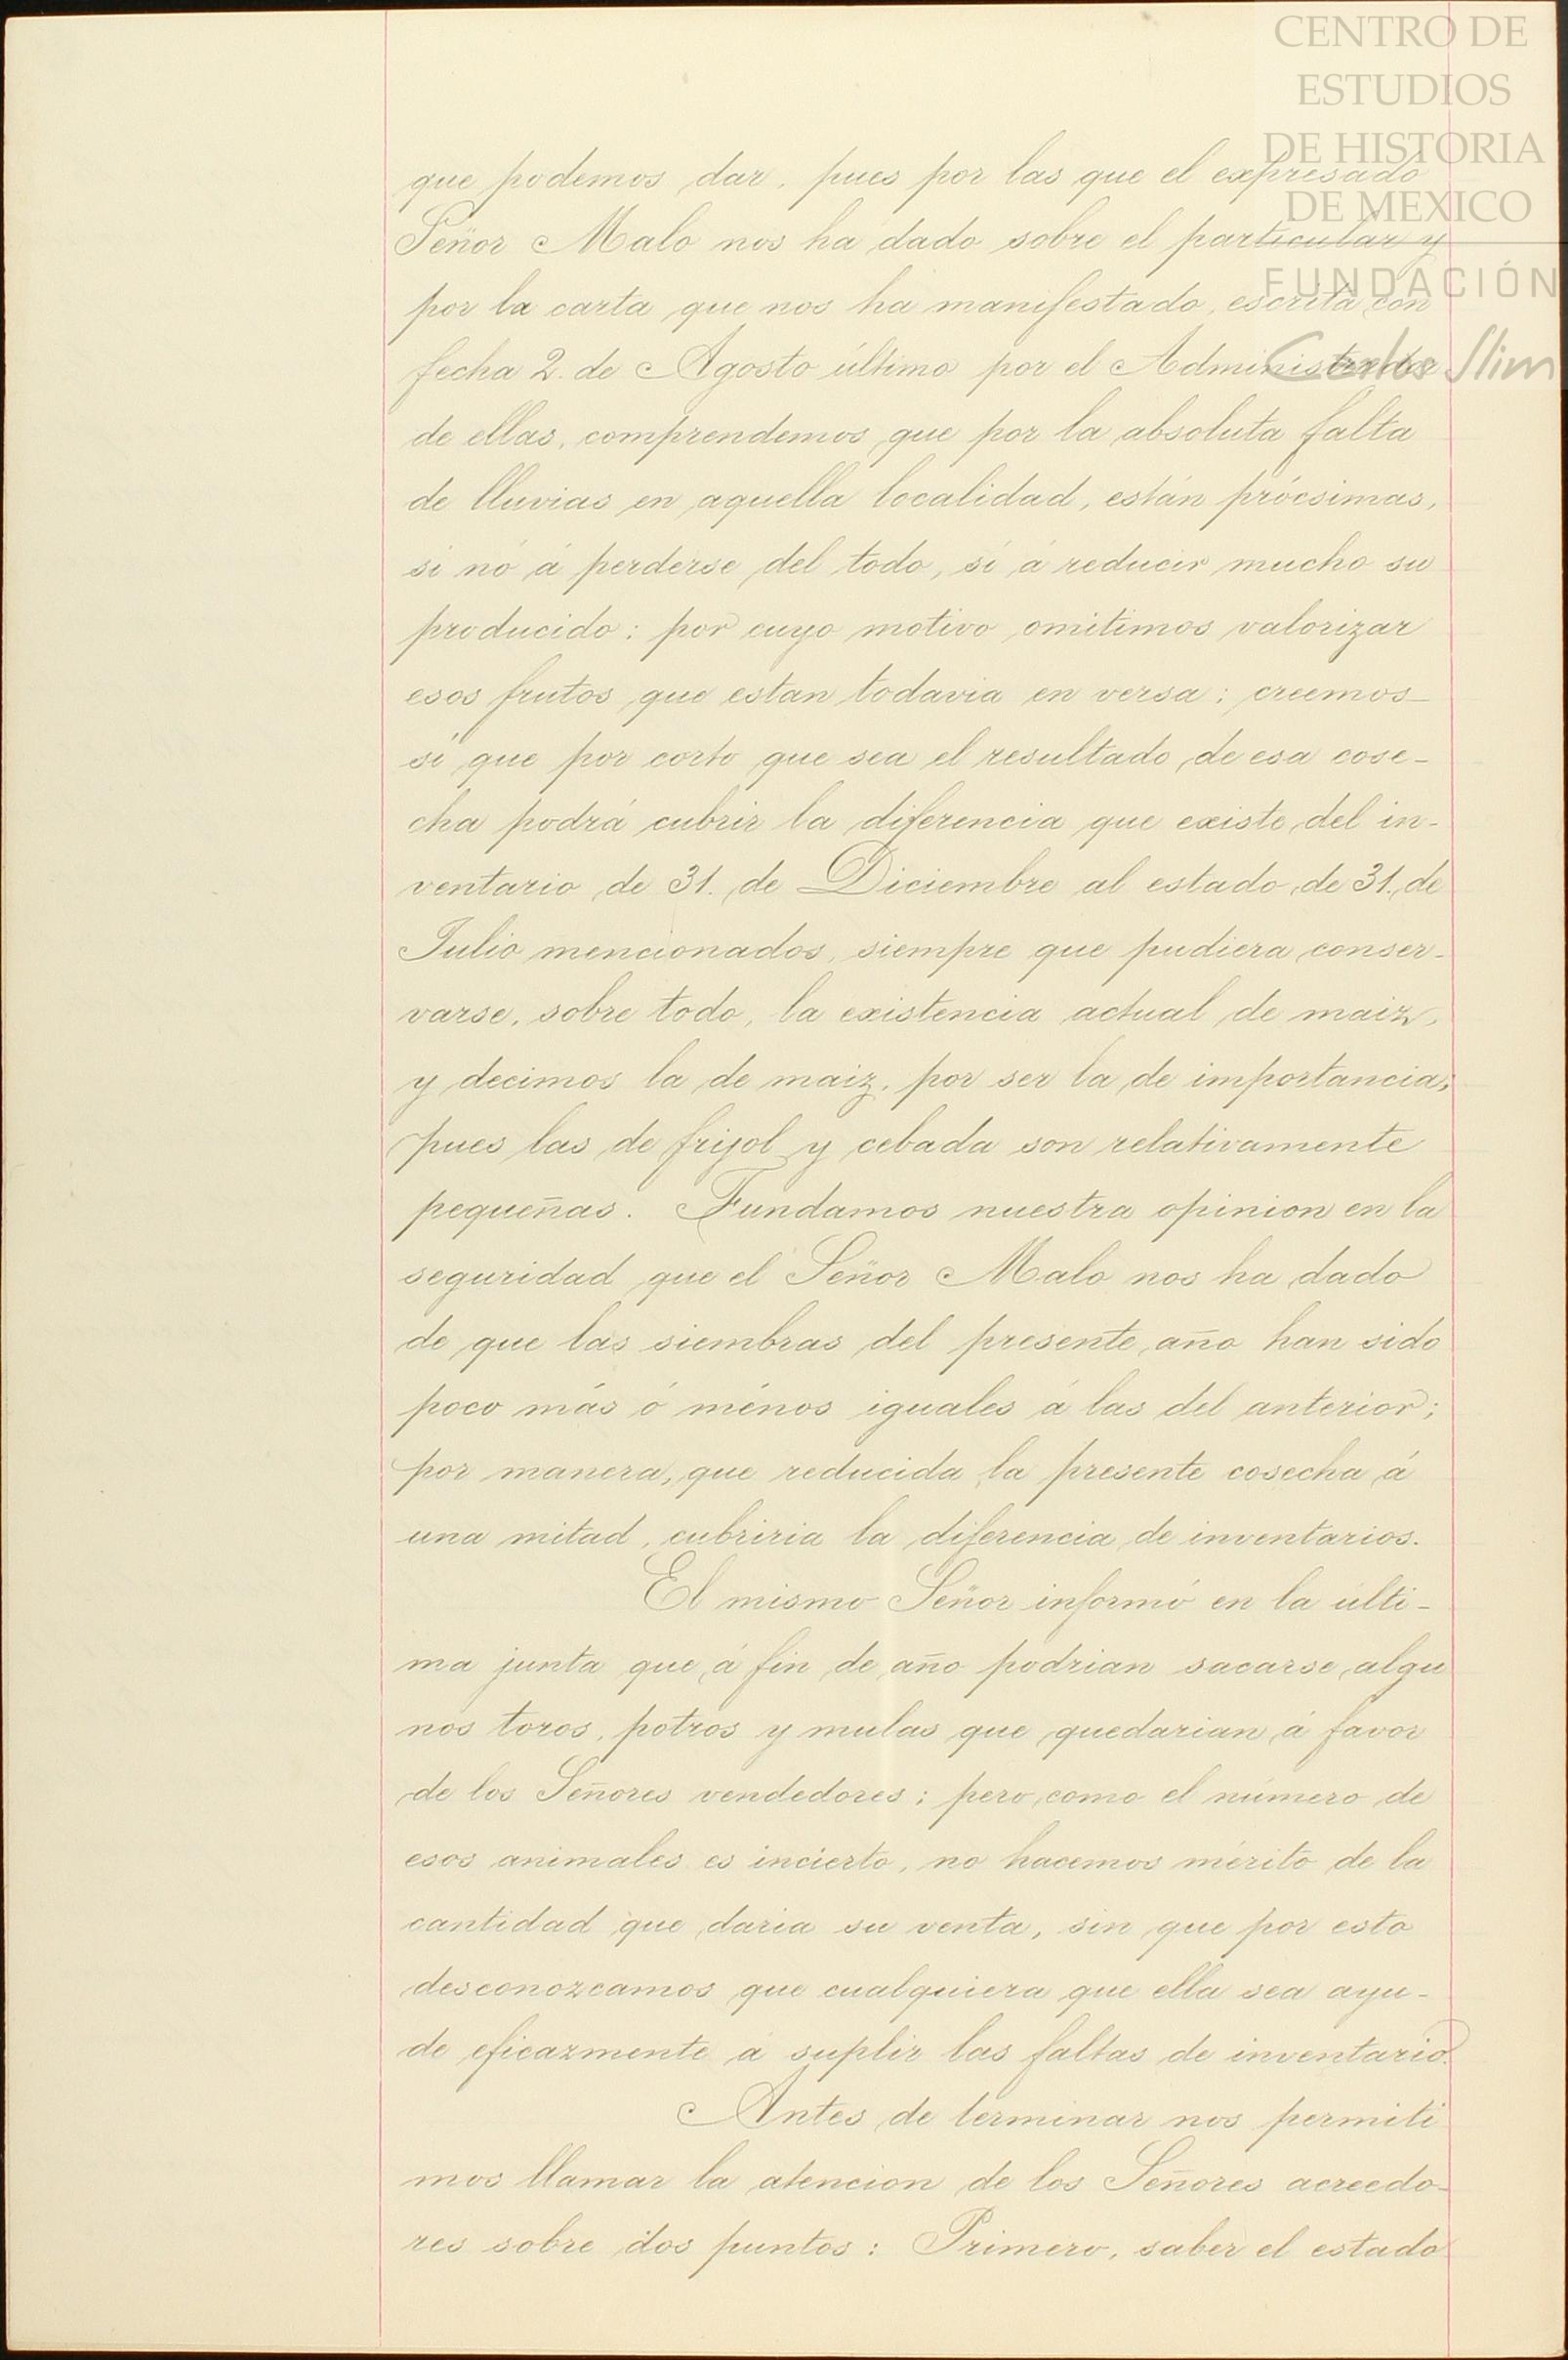 CENTRO DE
ESTUDIOS
DE HISTORIA
DE MEXICO
FUNDACIÓN
Carlos Slim
que podemos dar, pues por las que el expresado
Señor Malo nos ha dado sobre el particular y
por la carta que nos ha manifestado, escrita con
fecha 2. de Agosto último por el Administrador
de ellas, comprendemos que por la absoluta falta
de lluvias en aquella localidad, están prócsimas,
si nó á perderse del todo, sí á reducir mucho su
producido: por cuyo motivo omitimos valorizar
esos frutos que estan todavia en versa: creemos
sí que por corto que sea el resultado de esa cose-
cha podrá cubrir la diferencia que existe del in-
ventario de 31. de Diciembre al estado de 31. de
Julio mencionados, siempre que pudiera conser-
varse, sobre todo, la existencia actual de maiz,
y decimos la de maiz, por ser la de importancia;
pues las de frijol y cebada son relativamente
pequeñas. Fundamos nuestra opinion en la
seguridad que el Señor Malo nos ha dado
de que las siembras del presente año han sido
poco más ó ménos iguales á las del anterior;
por manera, que reducida la presente cosecha á
una mitad, cubriria la diferencia de inventarios.
El mismo Señor informó en la ulti-
ma junta que á fin de año podrian sacarse algu
nos toros, potros y mulas que quedarian á favor
de los Señores vendedores; pero como el número de
esos animales es incierto, no hacemos mérito de la
cantidad que daria su venta, sin que por esto
desconozcamos que cualquiera que ella sea ayu-
de eficazmente á suplir las faltas de inventario.
Antes de terminar nos permiti
mos llamar la atencion de los Señores acreedo-
res sobre dos puntos: Primero, saber el estado